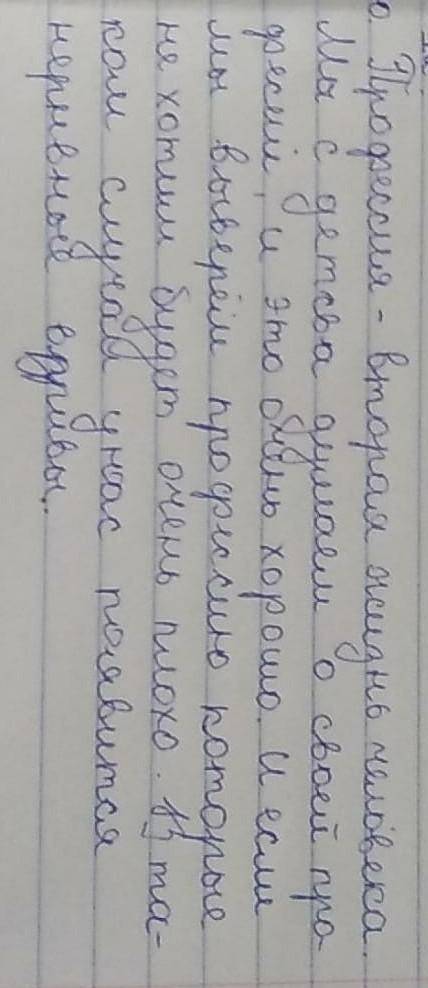 о. Профессия - вторая жизнь человека.
Мы с детсва думаем о своей про
фессии, и это очень хорошо. И если
мы выберем профессию которые
не хотим будет очень плохо. В та-
ком случае у нас появится
нервные срывы.